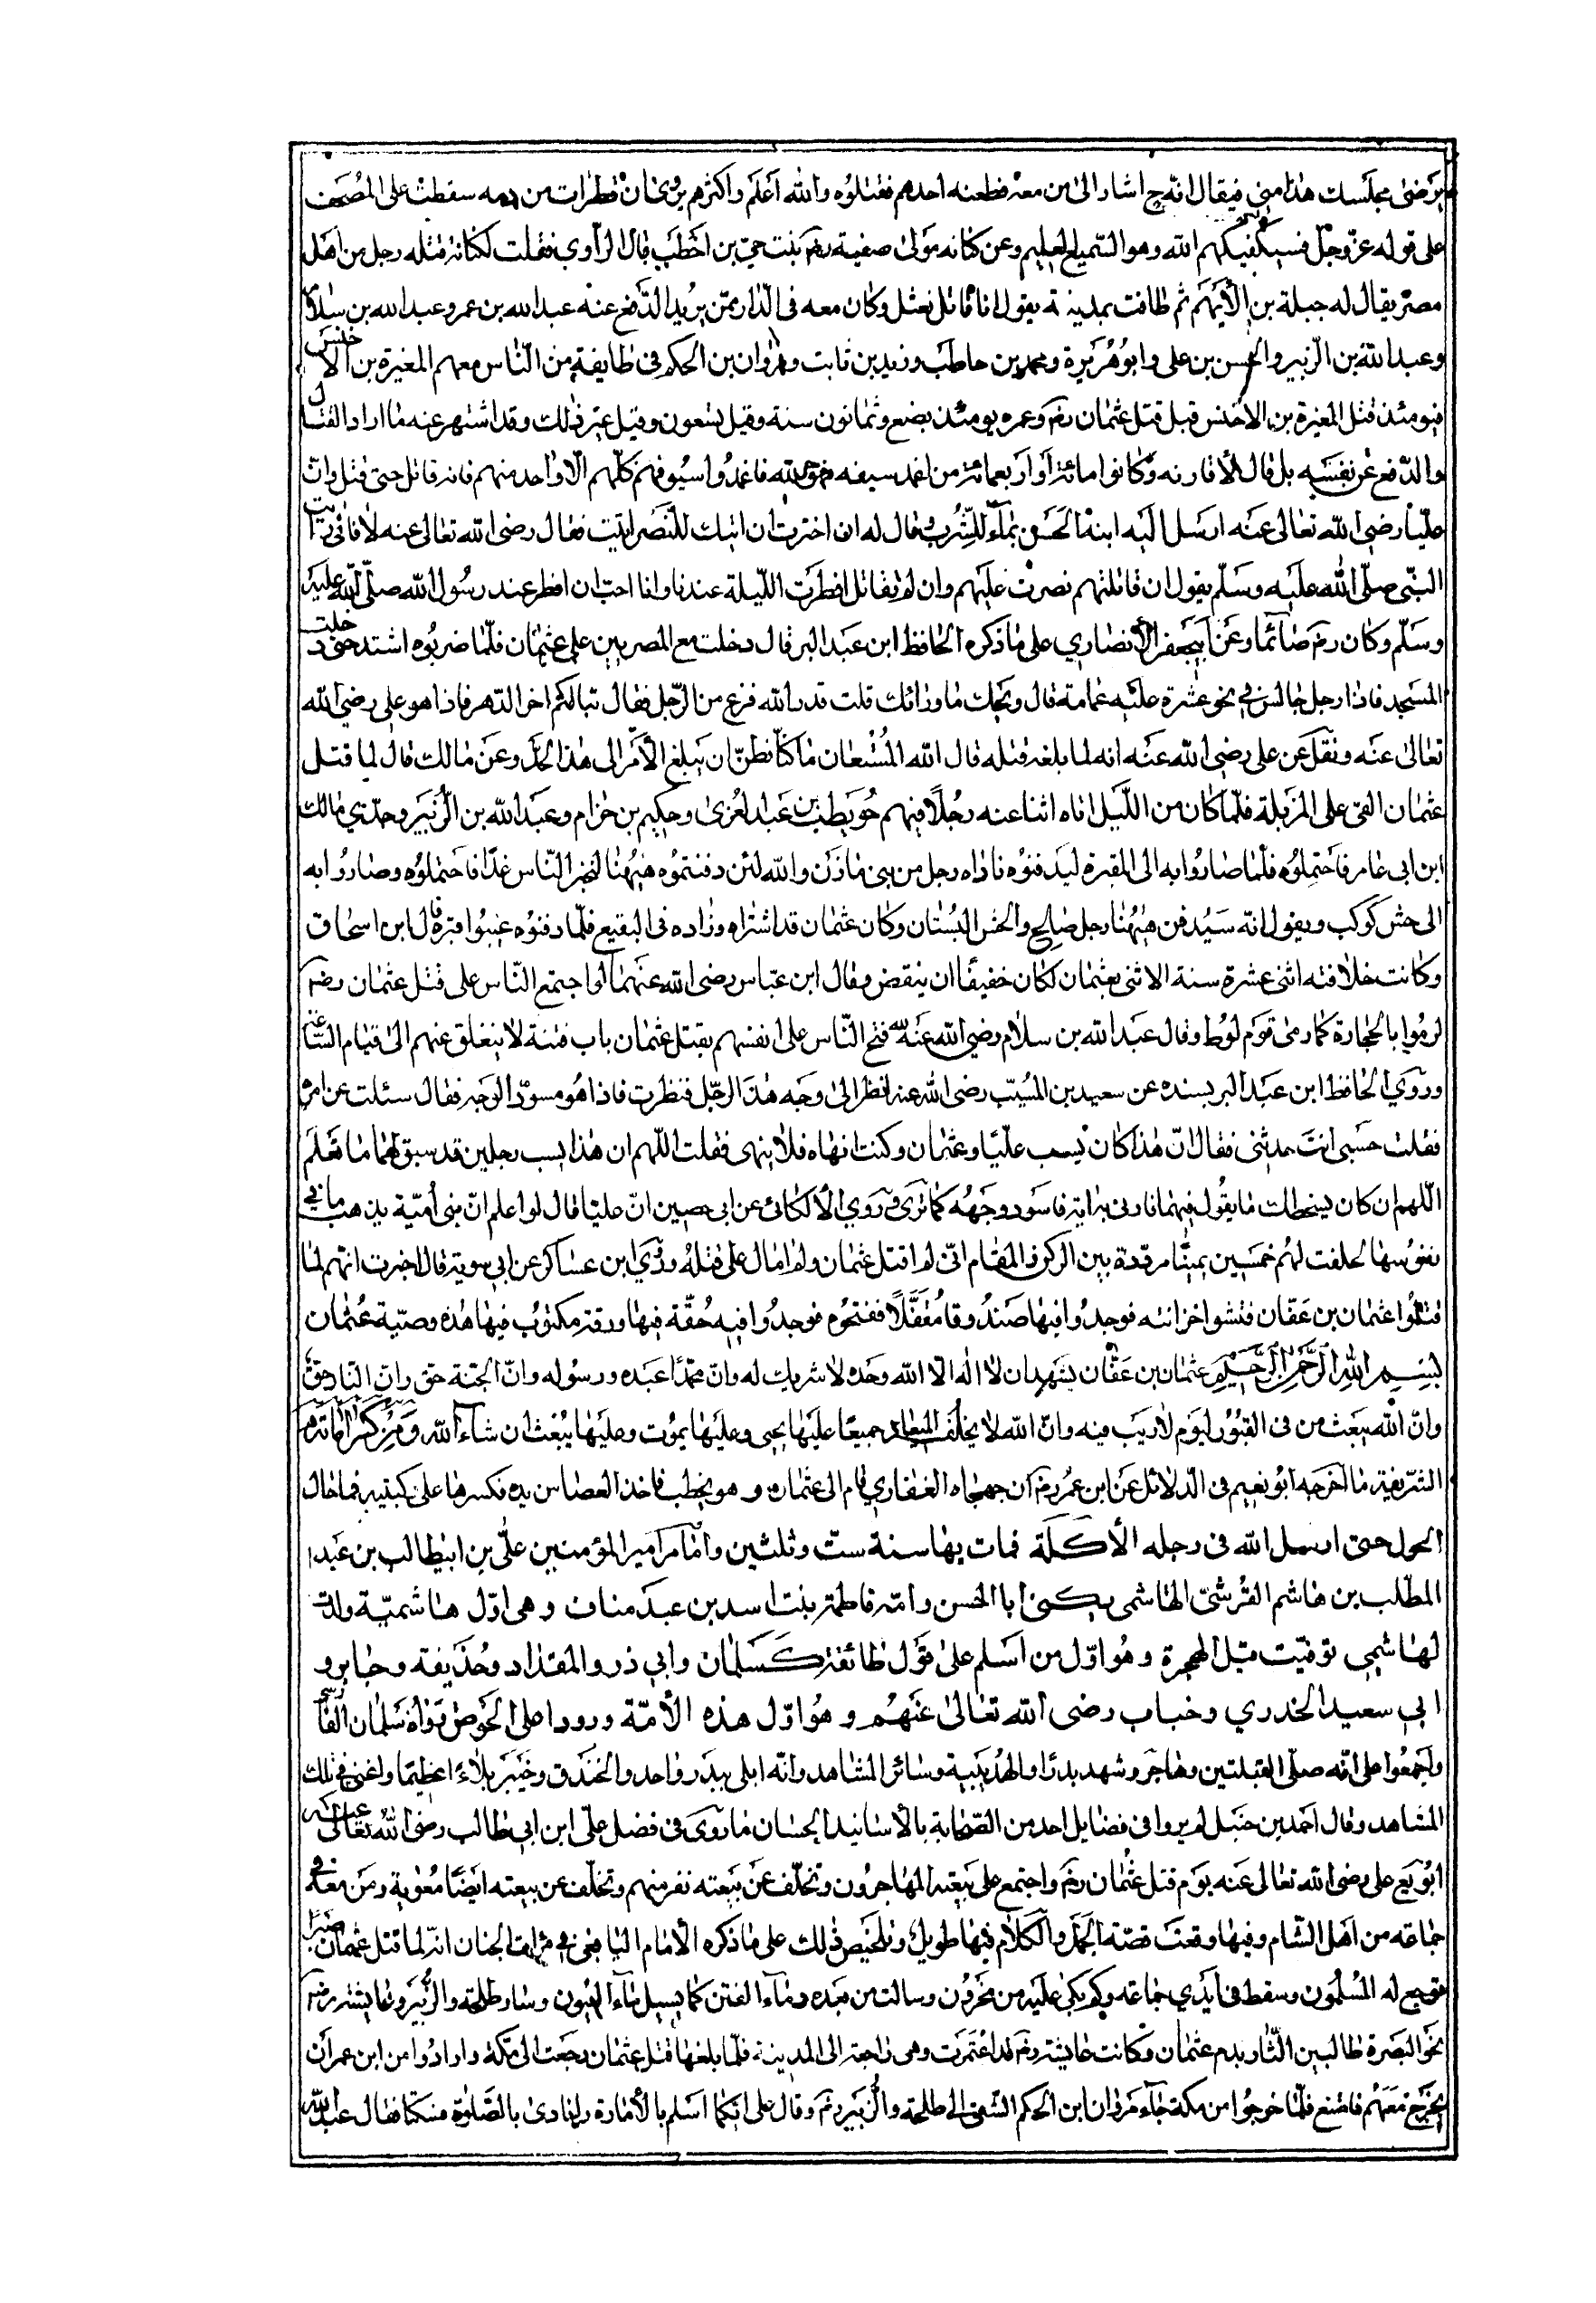 يرضى مجلسك هذا مني فيقال انّه ح اشار الى من معه فطعنه احدهم فقتلوه والله اعلم واكثرهم يروى ان قطرات من دمه سقطت على المصحف
على قوله عزّ وجلّ فسيكفيكهم الله وهو السّميع العليم وعن كنانه مولى صفيه رضه بنت حيّ بن اخطب قال الرّاوي فقلت لكنانة قتله رجل من اهل
مصر يقال له جبلة بن الأيهم ثم طافت بمدينة يقول انا قاتل نعثل وكان معه في الدار ممّن يريد الدّفع عنه عبد الله بن عمر وعبد الله بن سلام
وعبد الله بن الزّبير والحسن بن علي وابو هريرة ومحمد بن حاطب وزيد بن ثابت ومروان بن الحكم في طايفة من النّاس معهم المغيرة بن الاخنس
فيومئذ قتل المغيرة بن الاخنس قبل قتل عثمان رضه وعمره يومئذ بضع وثمانون سنة وقيل تسعون وقيل غير ذلك وقد اشتهر عنه ما اراد القتال
والدّفع عن نفسه بل قال لأقاربه وكانوا مائة أو اربعمائة من اغمد سيفه فهو حر لله فاغمدوا سيوفهم كلّهم الّا واحد منهم فانه قاتل حتى قتل وانّ
عليّا رضي الله تعالى عنه ارسل اليه ابنه الحسن بماء للشّرب وقال له ان اخترت ان اتيك للنّصر اتيت فقال رضى الله تعالى عنه لا فانّي رأيت
النبّي صلّى الله عليه وسلّم يقول ان قاتلتهم نصرت عليهم وان لم تقاتل افطرت اللّيلة عندنا وانا احبّ ان افطر عند رسول الله صلّى الله عليه
وسلّم وكان رضه صائما وعن ابي جعفر الأنصاري على ما ذكره الحافظ ابن عبد البر قال دخلت مع المصريين على عثمان فلمّا ضربوه اشتد حتى دخلت
المسجد فاذا رجل جالس في نحو عشرة عليه عمامة قال ويحك ما ورائك قلت قد والله فرغ من الرّجل فقال تبا لكم اخر الدّهر فاذا هو علي رضي الله
تعالى عنه ونقل عن علي رضي الله عنه انه لما بلغه قتله قال الله المستعان ما كنّا نظنّ ان يبلغ الأمر الى هذا الحدّ وعن مالك قال لما قتل
عثمان القى على المزبلة فلمّا كان من اللّيل اتاه اثنا عشر رجلًا فيهم حويطب بن عبد العزى وحكيم بن حزام وعبد الله بن الزّبير وجدّي مالك
ابن ابى عامر فاحتملوه فلمّا صاروا به الى المقبرة ليدفنوه ناداه رجل من بني مازن والله لئن دفنتموه ههنا لنخبر النّاس غدًا فاحتملوه وصاروا به
الى حش كوكب ويقول انّه سيدفن ههنا رجل صالح والحش البستان وكان عثمان قد اشتراه وزاده فى البقيع فلمّا دفنوه غيبوا قبره قال ابن اسحاق
وكانت خلافته اثنى عشرة سنة الا اثنى بعثمان لكان خفيفًا ان ينقض وقال ابن عبّاس رضى الله عنهما لو اجتمع النّاس على قتل عثمان رضه
لرموا بالحجارة كما رمى قوم لوط وقال عبد الله بن سلام رضي الله عنه فتح النّاس على انفسهم بقتل عثمان باب فتنة لا ينغلق عنهم الى قيام السّاعة
وروي الحافظ ابن عبد البر بسنده عن سعيد بن المسيّب رضى الله عنه انظر الى وجه هذا الرجّل فنظرت فاذا هو مسودّ الوجه فقال سئلت عن امره
فقلت حسبى انت حدثنى فقال انّ هذا كان يسب عليًا وعثمان وكنت انهاه فلا ينهى فقلت اللّهم ان هذا يسب رجلين قد سبق لهما ما تعلم
اللّهم ان كان يسخطك ما يقول فيهما فارنى به اية فاسود وجهه كما ترى وروي الألكائى عن ابى حصين انّ عليّا قال لو اعلم انّ بني أميّة يذهب ما في
نفوسها لحلفت لهم خمسين يمينًا مرددة بين الركن والمقام انّى لم اقتل عثمان ولم امال على قتله وروي ابن عساكر عن ابي سوية قال اخبرت انّهم لمّا
قتلوا عثمان بن عفّان فتشوا خزانته فوجدوا فيها صندوقا مقفّلًا ففتحوه فوجدوا فيه حقّة فيها ورقة مكتوب فيها هذه وصيّة عثمان
بسم الله الرّحمن الرّحيم عثمان بن عفّان يشهد ان لا اله الا الله وحده لا شريك له وانّ محمّدًا عبده ورسوله وانّ الجنّة حق وان النار حقّ
وانّ الله يبعث من فى القبور ليوم لا ريب فيه وانّ الله لا يخلف الميعاد جميعًا عليها يحيى وعليها يموت وعليها يبعث ان شآء الله ومن كراماته
الشّريفة ما اخرجه ابو نعيم فى الدّلائل عن ابن عمر رضه ان جهجاه الغفاري قام الى عثمان وهو يخطب فاخذ العصا من يده فكسرها على ركبتيه فما حال
الحول حتى ارسل الله فى رجله الأكلة فمات بها سنة ستّ وثلثين وامّا امير المؤمنين عليّ بن ابيطالب بن عبد
المطّلب بن هاشم القرشىّ الهاشمى يكنى ابا الحسن وامّه فاطمة بنت اسد بن عبد مناف وهى اوّل هاشميّة ولدت
لهاشمي توفيّت قبل الهجرة وهو اوّل من اسلم على قول طائفة كسلمان وابي ذر والمقداد وحذيفه وجابر و
ابي سعيد الخدري وخباب رضى الله تعالى عنهم وهو اوّل هذه الأمّة ورودا على الحوض رواه سلمان الفارسي
واجمعوا على انّه صلّى القبلتين وهاجر وشهد بدرًا والحديبية وسائر المشاهد وانّه ابلى ببدر واحد والخندق وخيبر بلاءً اعظيمًا واغنى في تلك
المشاهد وقال احمد بن حنبل لم يروا فى فضايل احد من الصّحابة بالأسانيد الحسان ما روى فى فضل عليّ ابن ابي طالب رضى الله تعالى عنه
بويع علي رضى الله تعالى عنه يوم قتل عثمان رضه واجتمع على بيعته المهاجرون وتخلّف عن بيعته نفر منهم وتخلّف عن بيعته ايضًا معوية ومن معه في
جماعة من اهل الشّام وفيها وقعت قصّة الجمل والكلام فيها طويل وتلخيص ذلك على ما ذكره الأمام اليافعى في مرات الجنان انّه لما قتل عثمان صبرًا
توجع له المسلمون وسقط فى أيدي جماعة وكم بكى عليه من محزون وسالت من بعده دماء الفتن كما يسيل ماء العيون وسار طلحة والزّبير وعايشة رضه
نحو البصرة طالبين الثّار بدم عثمان وكانت عايشة رضه قد اعتمرت وهى راجعة الى المدينة فلمّا بلغها قتل عثمان رجعت الى مكّة وارادوا من ابن عمر ان
يخرج معهم فامتنع فلمّا خرجوا من مكة جآء مروان ابن الحكم الى طلحة والزّبير رضه وقال على ايّكما اسلم بالأمارة وانادى بالصّلوة فسكتا فقال عبد الله